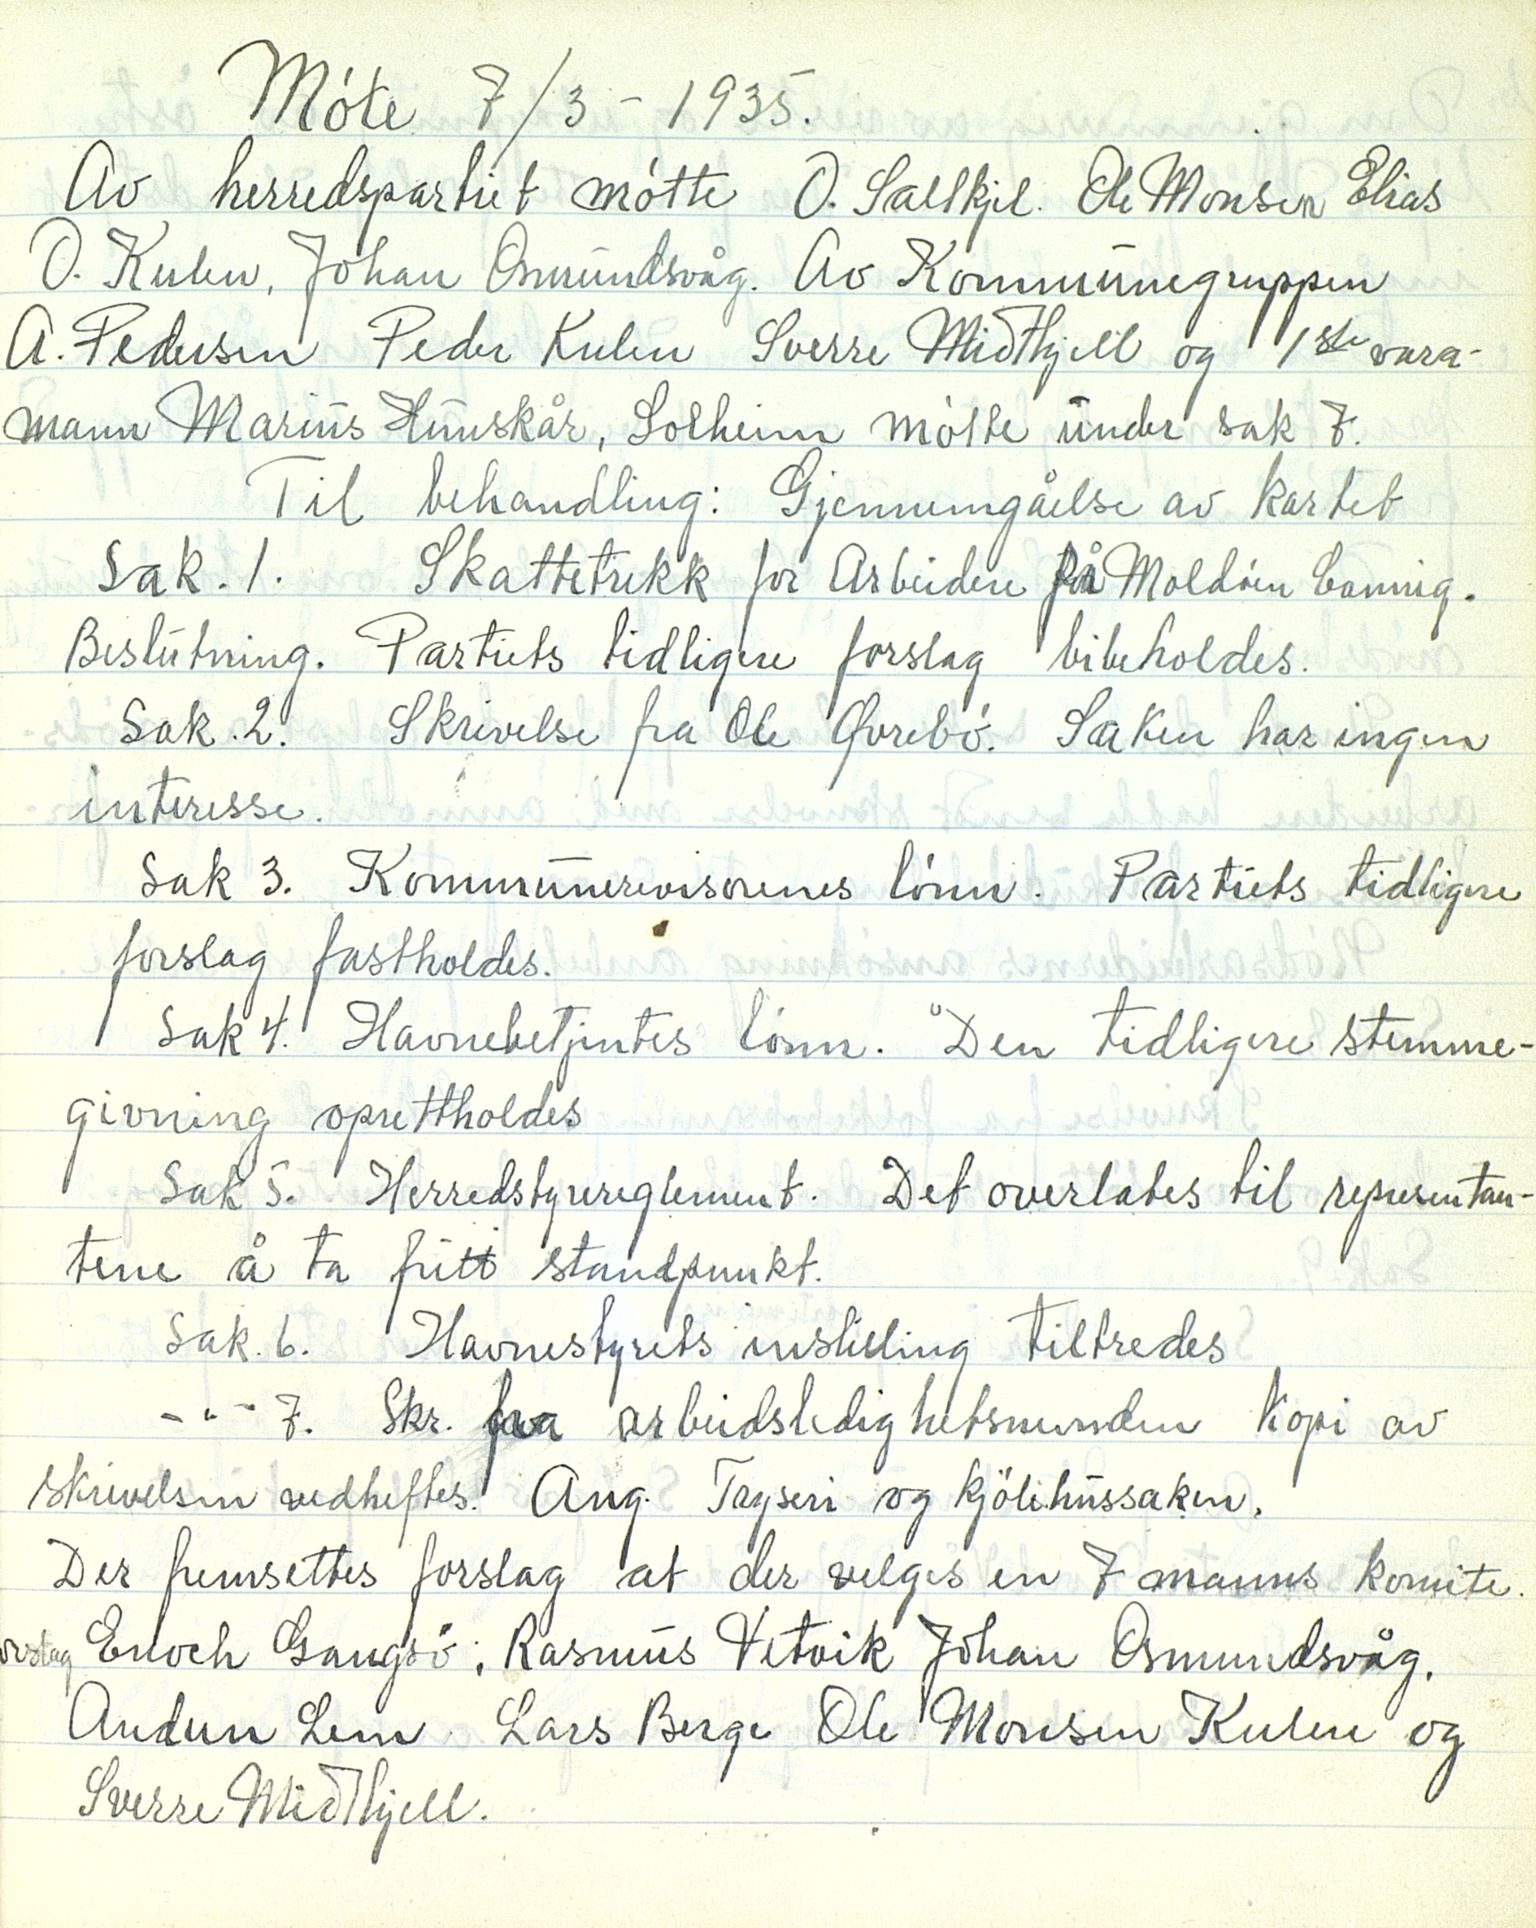 Móte 7/3 - 1935.
Av herredspartiet mótte O. Saltkjel. Ole Monsen Elias
O. Kulen, Johan Osmundsvåg. Av Kommunegruppen
A. Pedersen Peder Kulen Sverre Midthjell og 1ste vara-
mann Marius Huuskår, Solheim mótte under sak 7.
Til behandling: Gjennemgåelse av kartet
Sak. 1. Skattetrekk for Arbeidere på Moldóen Cannig.
Beslutning. Partiets tidligere forslag bibeholdes.
Sak. 2. Skrivelse fra Ole Øvrebó. Saken har ingen
interesse.
Sak 3. Kommunerevisorenes lónn. Partiets tidligere
forslag fastholdes.
Sak 4. Havnebetjentes lónn. Den tidligere stemme-
givning oprettholdes
Sak 5. Herredstyrereglement. Det overlates til representan-
tene å ta fritt standpunkt.
Sak. 6. Havnestyrets instilling tiltredes
- " - 7. Skr. fra arbeidsledighetsnemnden Kopi av
skrivelsen vedheftes. Ang. Fryseri og kjölehussaken.
Der fremsettes forslag at der velges en 7 manns komite.
Enoch Gangsö, Rasmus Vetvik Johan Osmundsvåg.
Audun Lem. Lars Berge Ole Monsen Kulen og
Sverre Midthjell.